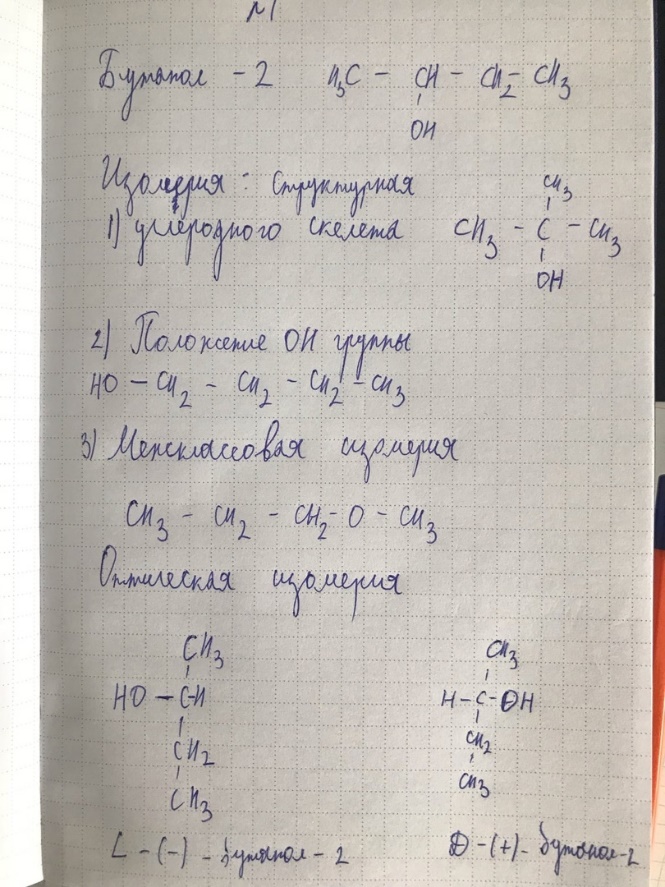 №1
Бутанол - 2 H₃C - CH - CH₂ - CH₃
OH
Изомерия: Структурная
1) углеродного скелета CH₃ - C - CH₃
CH₃
OH
2) Положение OH группы
HO - CH₂ - CH₂ - CH₂ - CH₃
3) Межклассовая изомерия
CH₃ - CH₂ - CH₂ - O - CH₃
Оптическая изомерия
CH₃ CH₃
HO - C-H H - C - OH
CH₂ CH₂
CH₃ CH₃
L - (-) - бутанол - 2 D - (+) - бутанол - 2